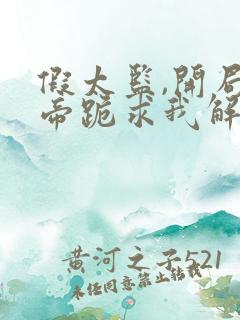 假太監,開局
帝跪求我解
黃河之子521
未经同意禁止转载